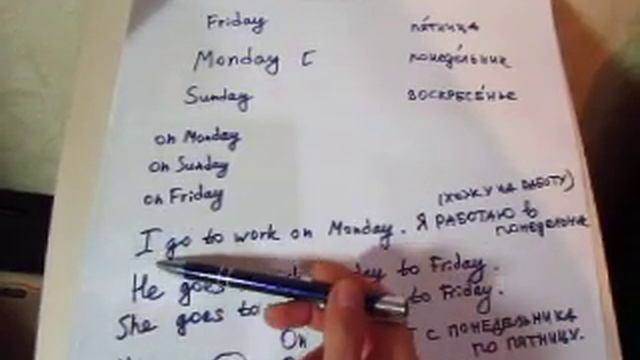 Friday пятница
Monday С понедельник
Sunday воскресенье
on Monday
on Sunday
on Friday
(хожу на работу)
I go to work on Monday. Я РАБОТАЮ в
понедельник
He goes to Friday.
She goes to to Friday.
On С ПОНЕДЕЛЬНИКА
ПО ПЯТНИЦУ.